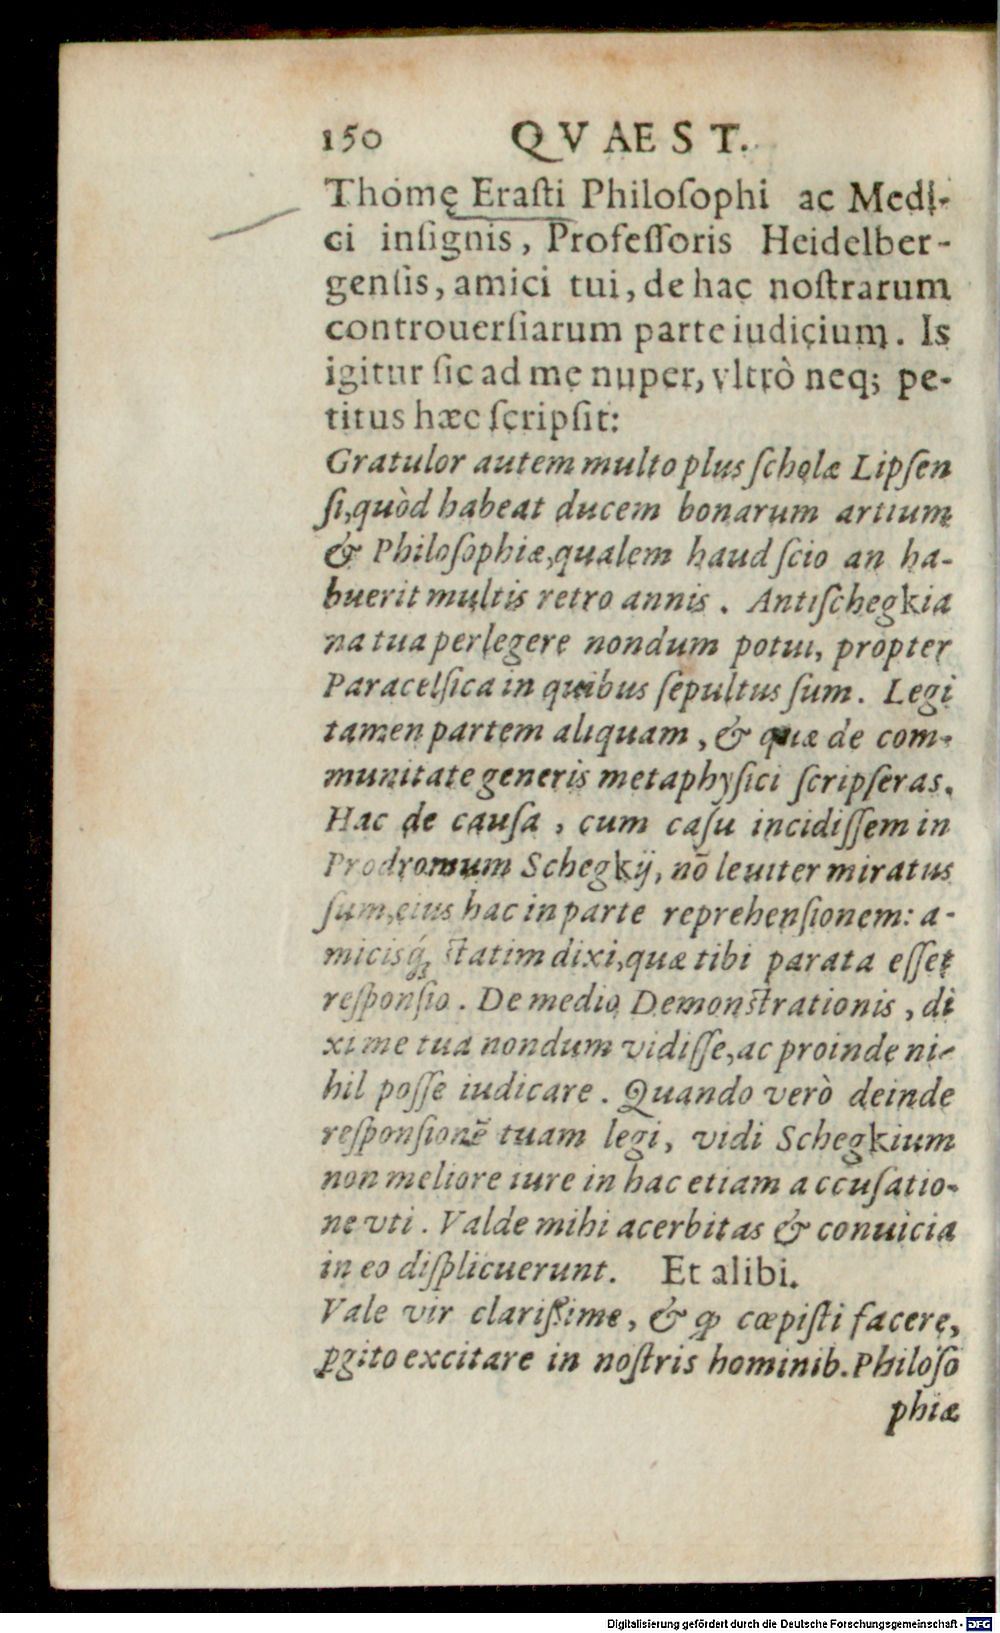 150 QVAEST.
Thomę Erasti Philosophi ac Medi-
ci insignis, Professoris Heidelber-
gensis, amici tui, de hac nostrarum
controuersiarum parte iudicium. Is
igitur sic ad me nuper, vltrò neq; pe-
titus hæc scripsit:
Gratulor autem multo plus scholæ Lipsen
si, quòd habeat ducem bonarum artium
& Philosophiæ, qualem haud scio an ha-
buerit multis retro annis. Antischegkia
na tua perlegere nondum potui, propter
Paracelsica in quibus sepultus sum. Legi
tamen partem aliquam, & quæ de com-
munitate generis metaphysici scripseras.
Hac de causa, cum casu incidissem in
Prodromum Schegkij, nō leuiter miratus
sum, eius hac in parte reprehensionem: a-
micisq́; statim dixi, quæ tibi parata esset
responsio. De medio Demonstrationis, di
xi me tua nondum vidisse, ac proinde ni-
hil posse iudicare. Quando verò deinde
responsionē tuam legi, vidi Schegkium
non meliore iure in hac etiam accusatio-
ne vti. Valde mihi acerbitas & conuicia
in eo displicuerunt. Et alibi.
Vale vir clarissime, & ꝙ cœpisti facere,
ꝑgito excitare in nostris hominib. Philoso
phiæ
Digitalisierung gefördert durch die Deutsche Forschungsgemeinschaft - DFG